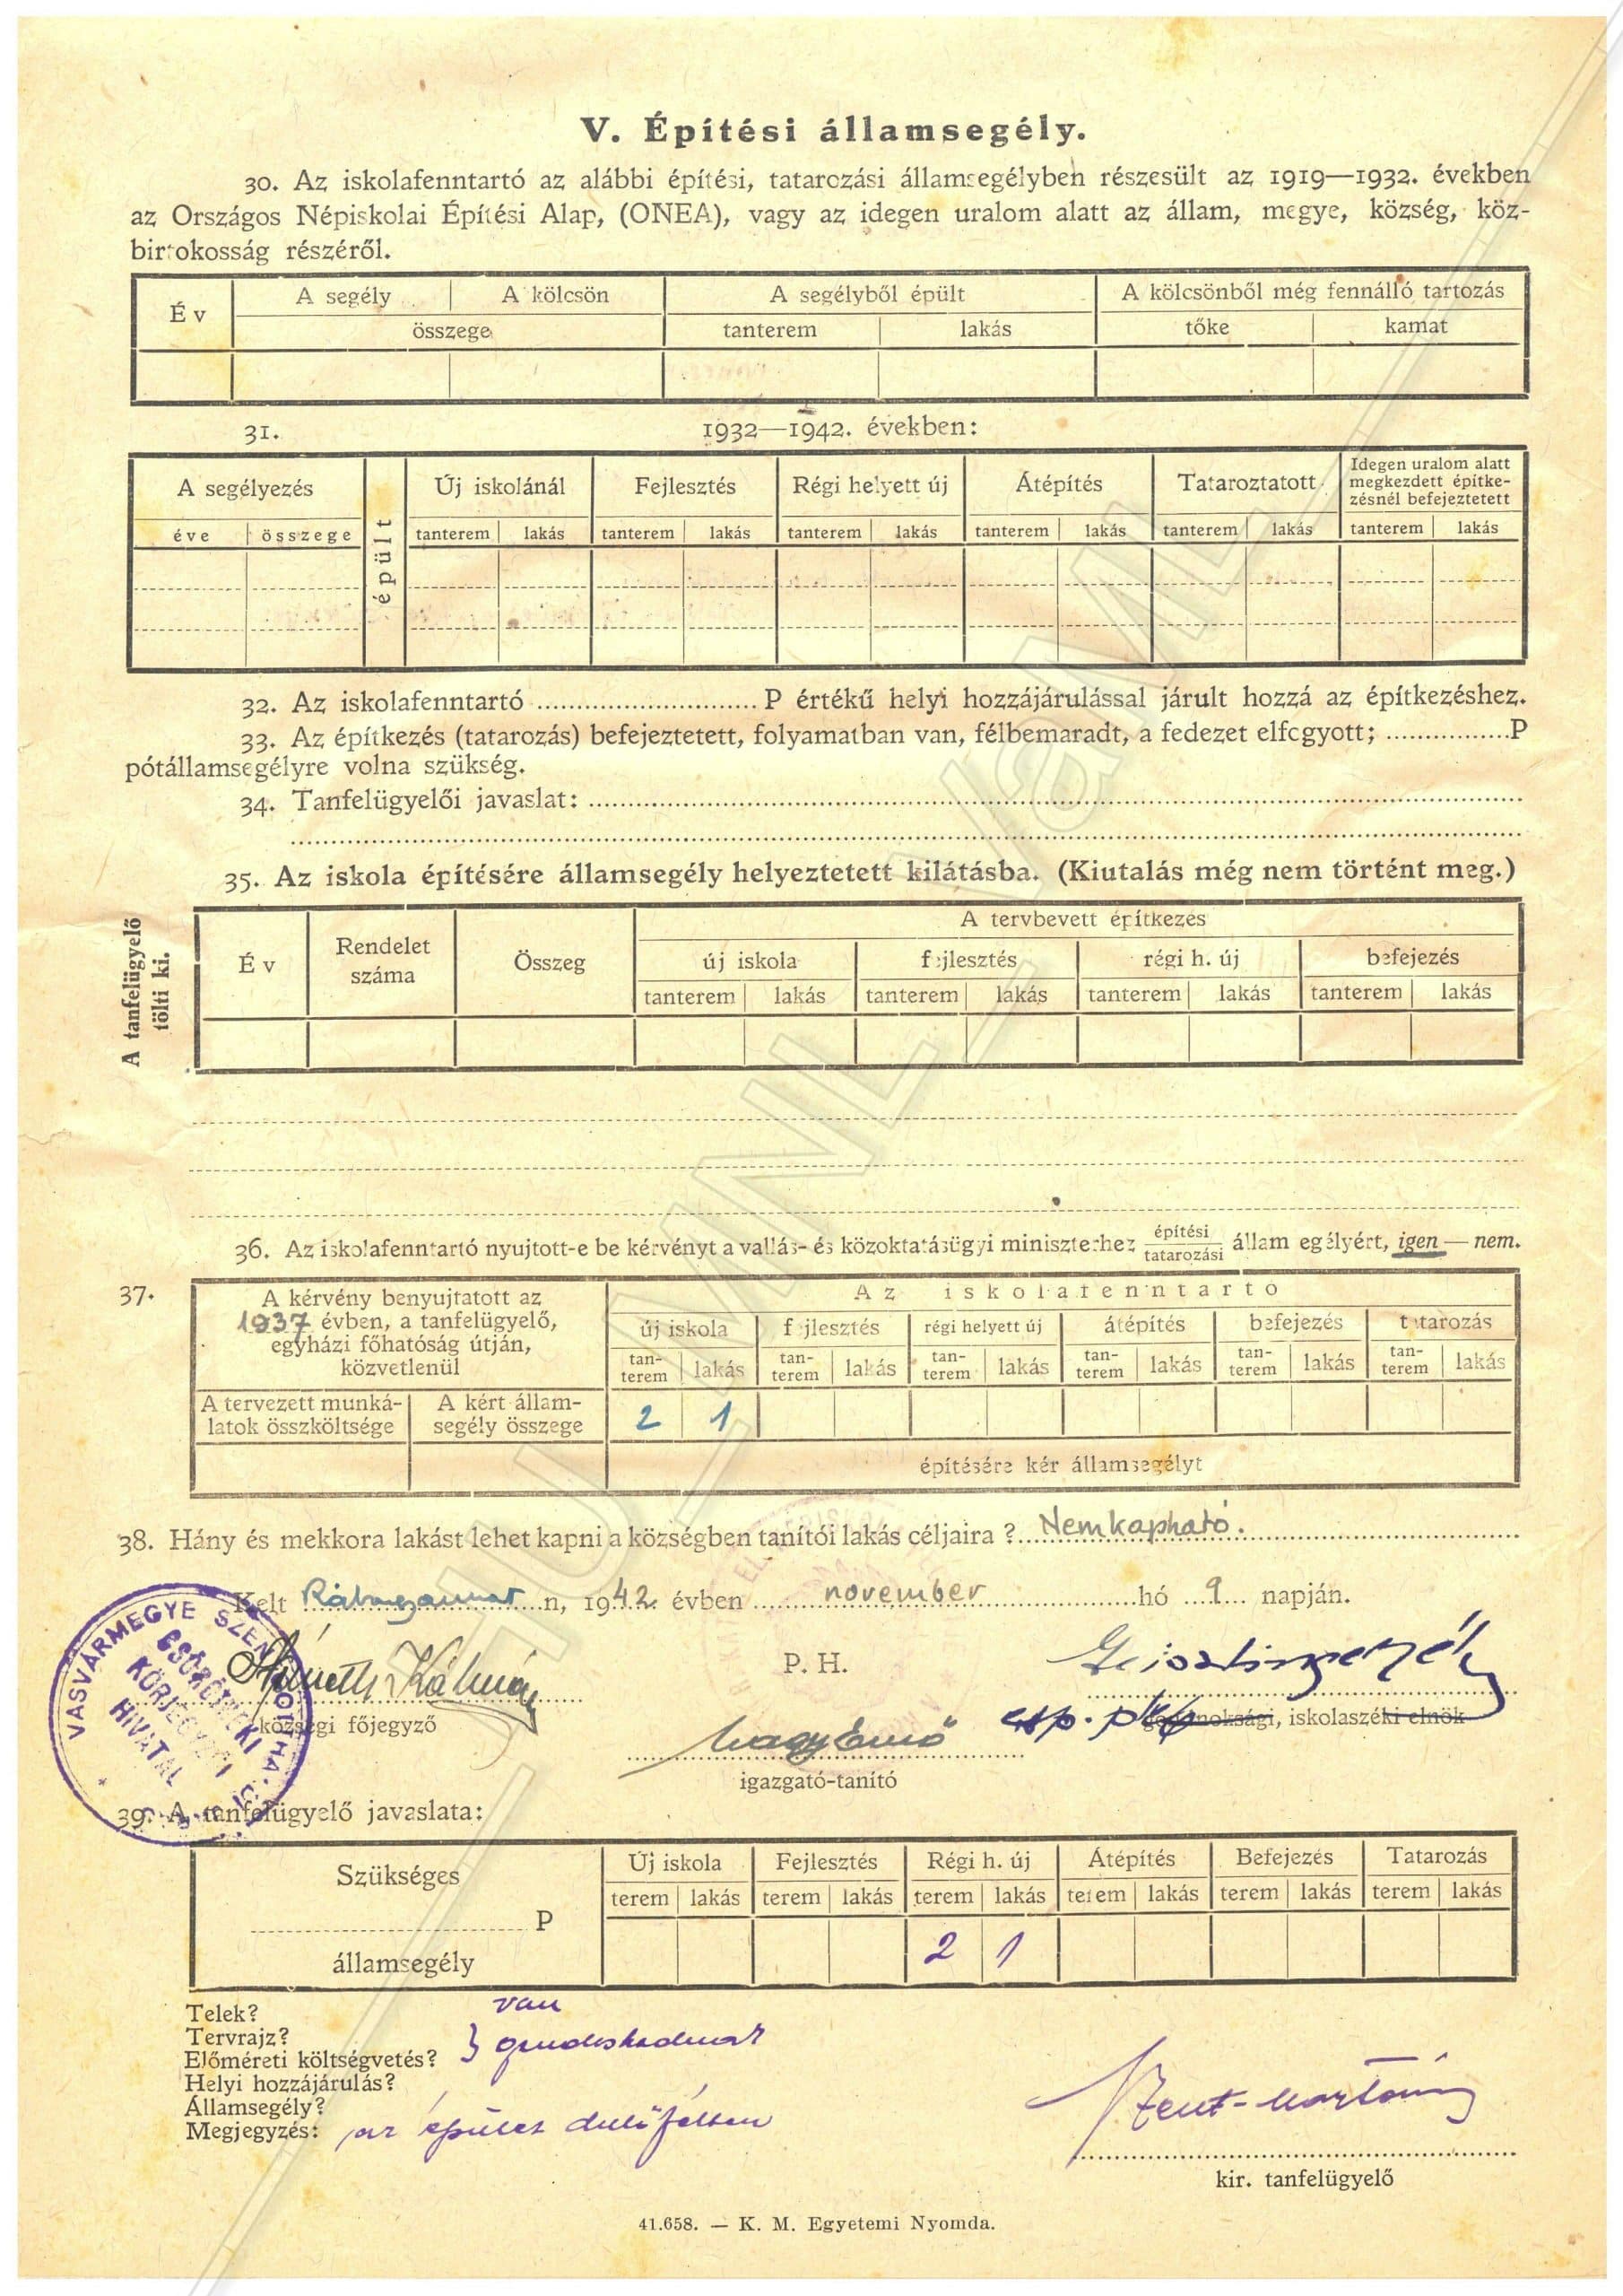 V. Építési államsegély.
30. Az iskolafenntartó az alábbi építési, tatarozási államsegélyben részesült az 1919—1932. években
az Országos Népiskolai Építési Alap, (ONEA), vagy az idegen uralom alatt az állam, megye, község, köz-
birtokosság részéről.
Év
A segély
A kölcsön
A segélyből épült
A kölcsönből még fennálló tartozás
összege
tanterem
lakás
tőke
kamat
31.
1932—1942. években:
A segélyezés
épült
Új iskolánál
Fejlesztés
Régi helyett új
Átépítés
Tataroztatott
Idegen uralom alatt
megkezdett építke-
zésnél befejeztetett
éve
összege
tanterem
lakás
tanterem
lakás
tanterem
lakás
tanterem
lakás
tanterem
lakás
tanterem
lakás
32. Az iskolafenntartó ............ P értékű helyi hozzájárulással járult hozzá az építkezéshez.
33. Az építkezés (tatarozás) befejeztetett, folyamatban van, félbemaradt, a fedezet elfogyott; ............P
pótállamsegélyre volna szükség.
34. Tanfelügyelői javaslat:
35. Az iskola építésére államsegély helyeztetett kilátásba. (Kiutalás még nem történt meg.)
A tanfelügyelő
tölti ki.
Év
Rendelet
száma
Összeg
A tervbevett építkezés
új iskola
fejlesztés
régi h. új
befejezés
tanterem
lakás
tanterem
lakás
tanterem
lakás
tanterem
lakás
36. Az iskolafenntartó nyujtott-e be kérvényt a vallás- és közoktatásügyi miniszterhez építési tatarozási állam egélyért, igen — nem.
37.
A kérvény benyujtatott az
1937 évben, a tanfelügyelő,
egyházi főhatóság útján,
közvetlenül
Az iskolafenntartó
új iskola
fejlesztés
régi helyett új
átépítés
befejezés
tatarozás
tan-
terem
lakás
tan-
terem
lakás
tan-
terem
lakás
tan-
terem
lakás
tan-
terem
lakás
tan-
terem
lakás
A tervezett munká-
latok összköltsége
A kért állam-
segély összege
2
1
építésére kér államsegélyt
38. Hány és mekkora lakást lehet kapni a községben tanítói lakás céljaira ? Nem kapható.
Kelt n, 1942. évben november hó 9 napján.
VASVÁRMEGYE
CSÖRÖTNEKI
KÖRJEGYZŐI
HIVATAL
Németh Kálmán
községi főjegyző
P. H.
Nagy Ernő
igazgató-tanító
esp. plb
gondnoksági, iskolaszéki elnök
39. A tanfelügyelő javaslata:
Szükséges
P
államsegély
Új iskola
Fejlesztés
Régi h. új
Átépítés
Befejezés
Tatarozás
terem
lakás
terem
lakás
terem
lakás
terem
lakás
terem
lakás
terem
lakás
2
1
Telek? van
Tervrajz?
Előméreti költségvetés?
Helyi hozzájárulás?
Államsegély?
Megjegyzés: az épület dülőfélben
kir. tanfelügyelő
41.658. — K. M. Egyetemi Nyomda.
HU_MNL_VaML